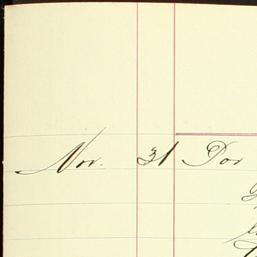 Nov. 31 Dor